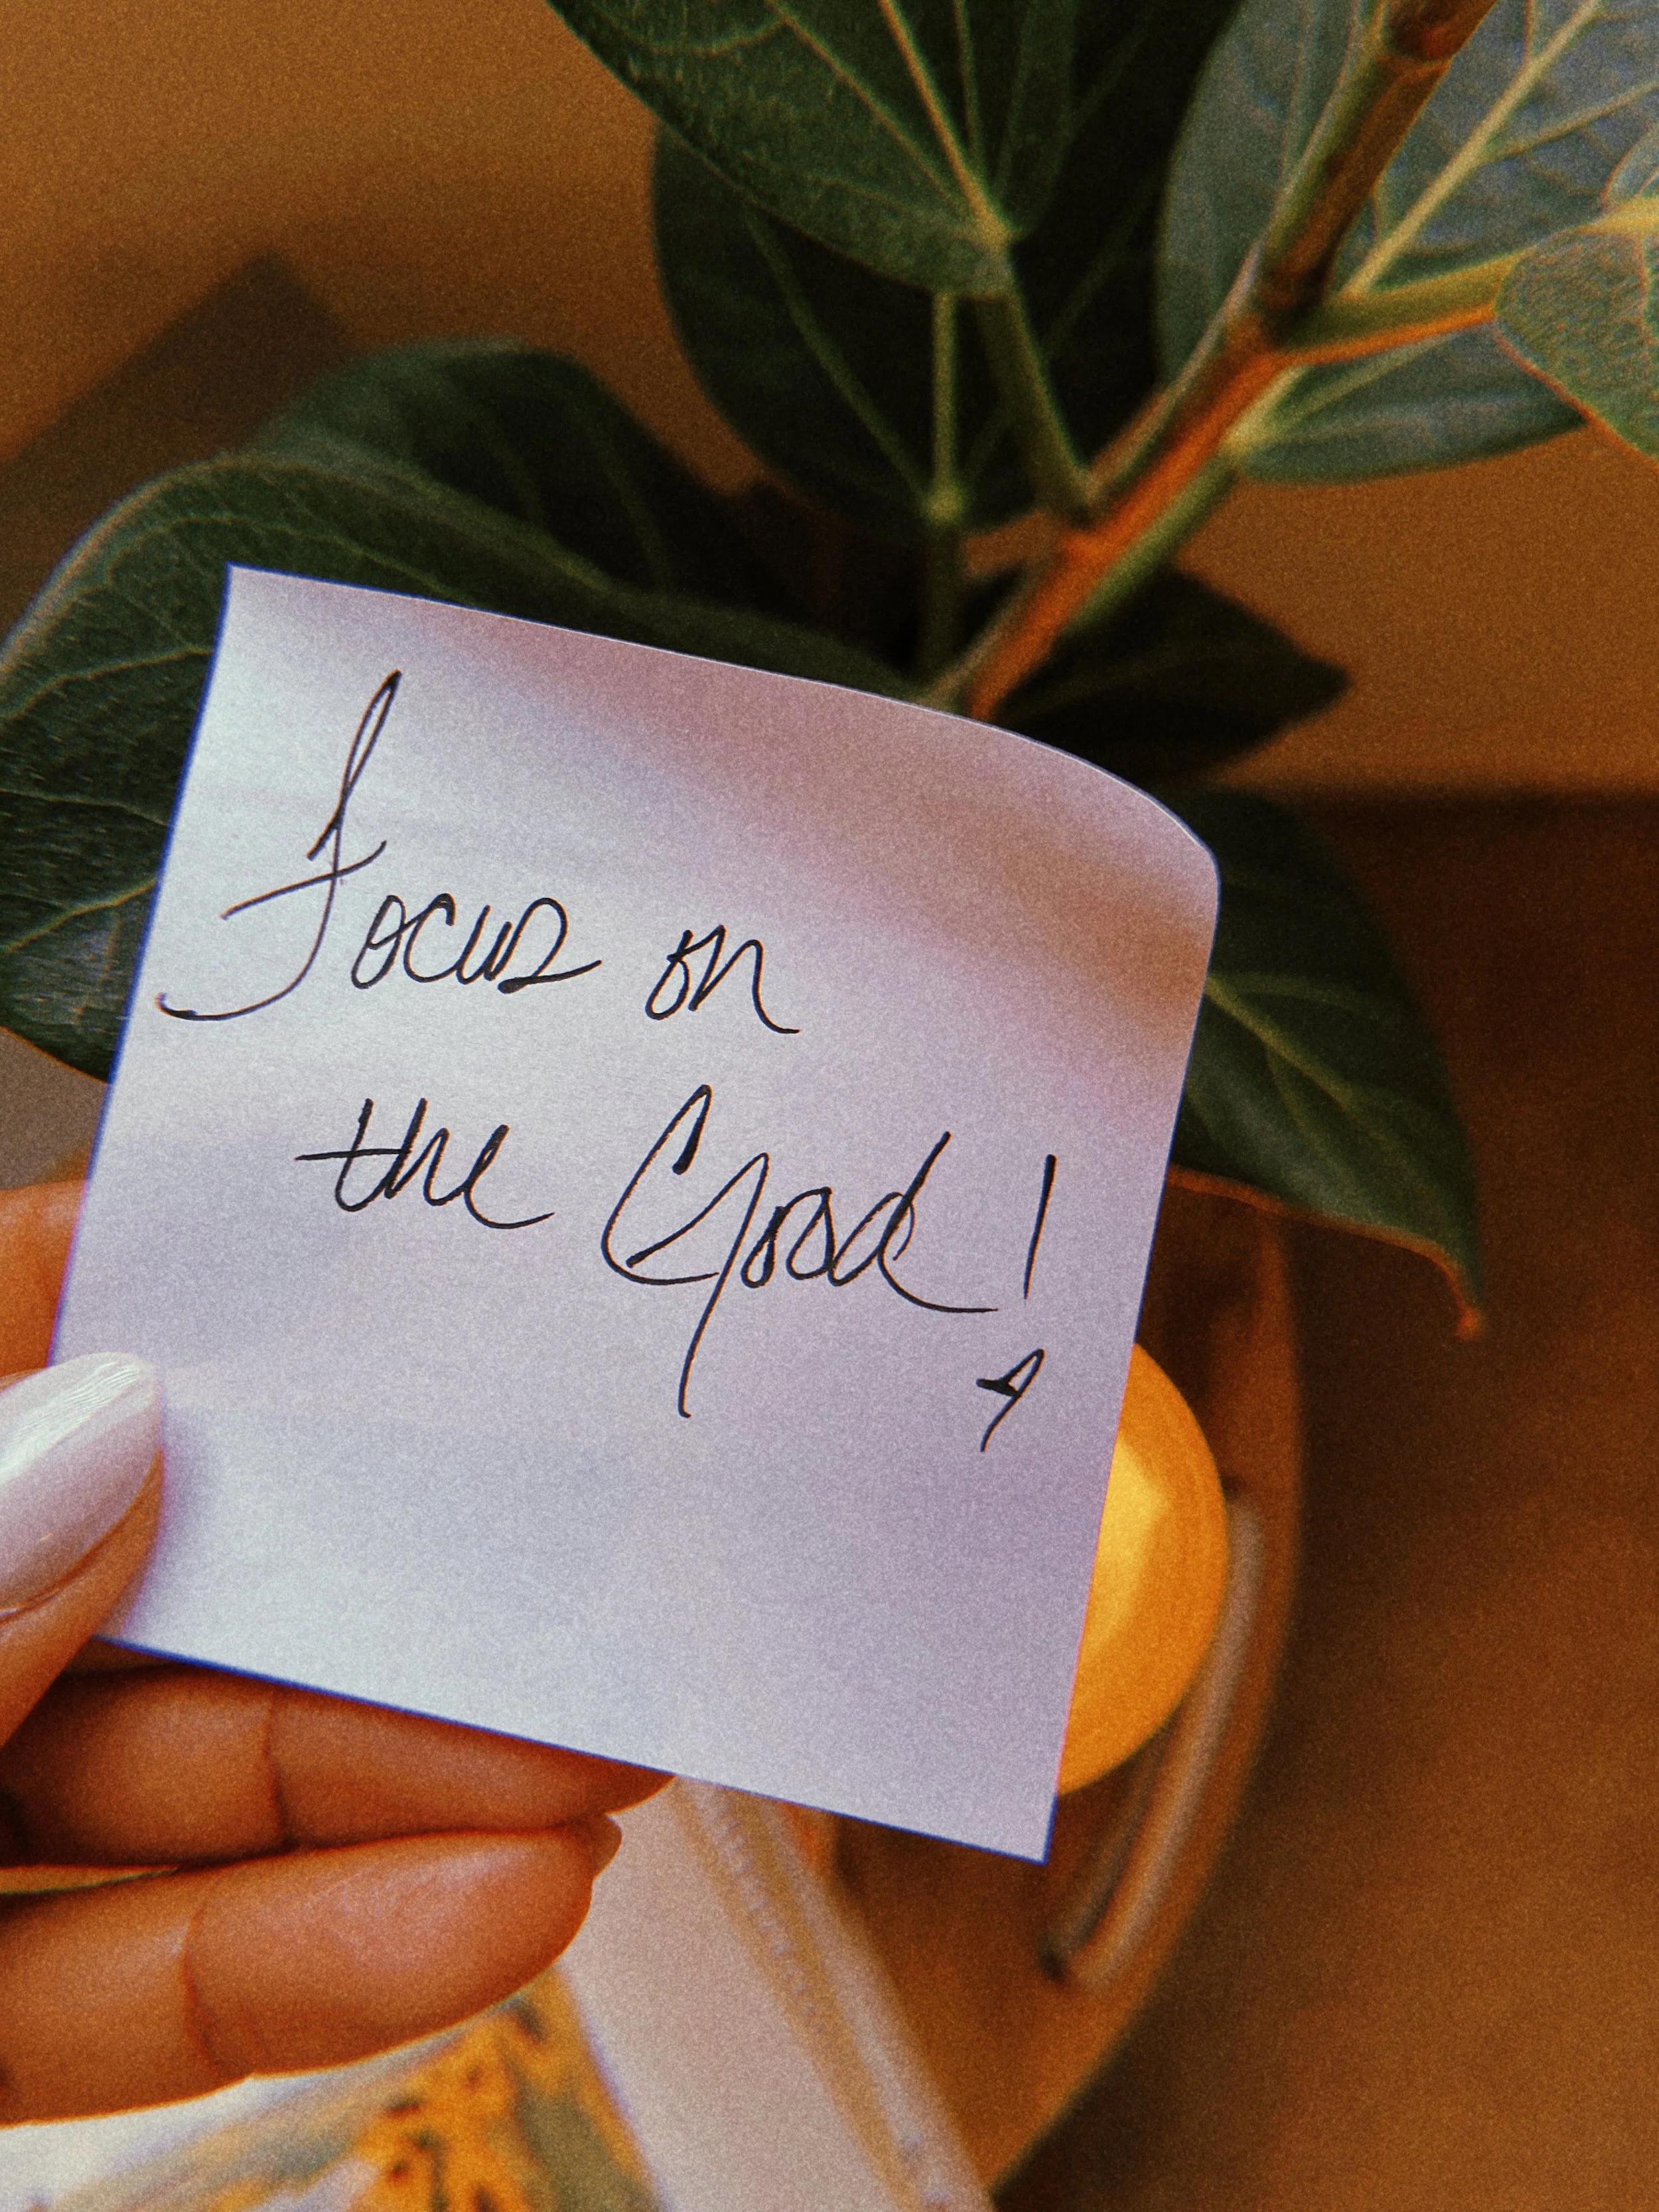 Focus on
the Good!